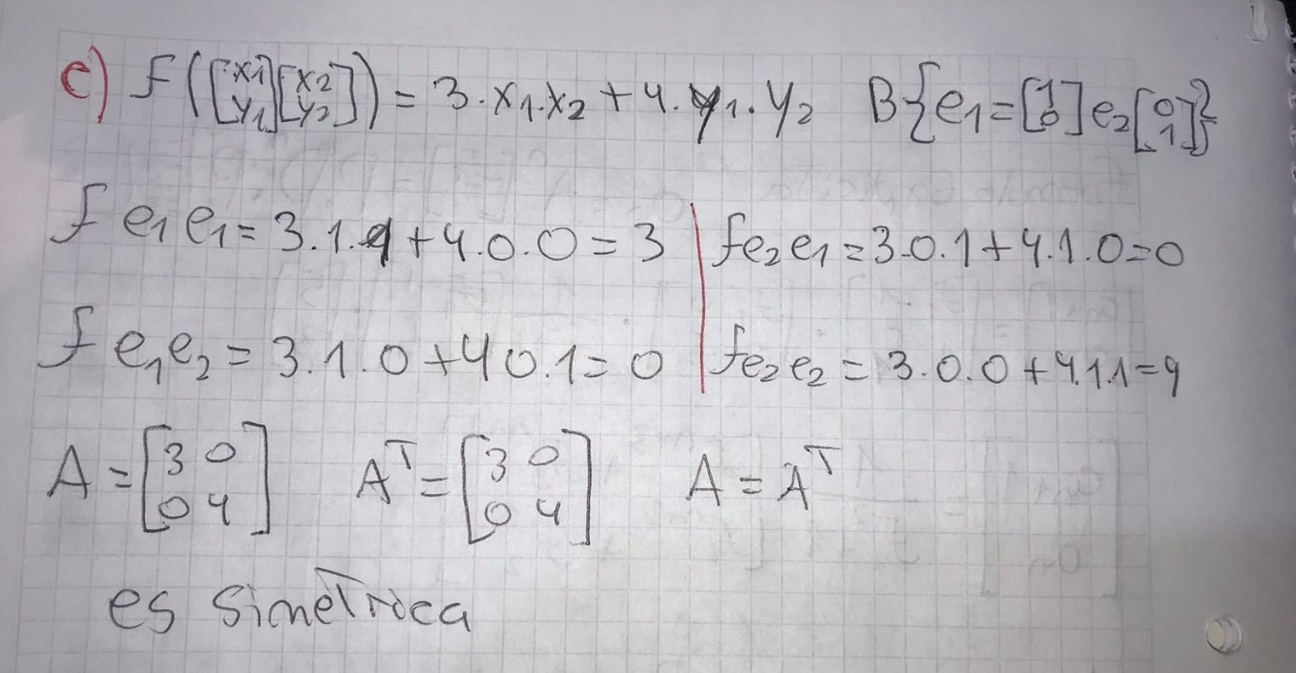 c) F([x1 y1][x2 y2]) = 3.x1.x2 + 4.y1.y2 B{e1=[1 0] e2[0 1]}
f e1 e1 = 3.1.1 + 4.0.0 = 3 | fe2e1 = 3.0.1 + 4.1.0 = 0
f e1e2 = 3.1.0 + 4 0.1 = 0 | fe2e2 = 3.0.0 + 4.1.1 = 4
A = [3 0 0 4] A^T = [3 0 0 4] A = A^T
es simétrica